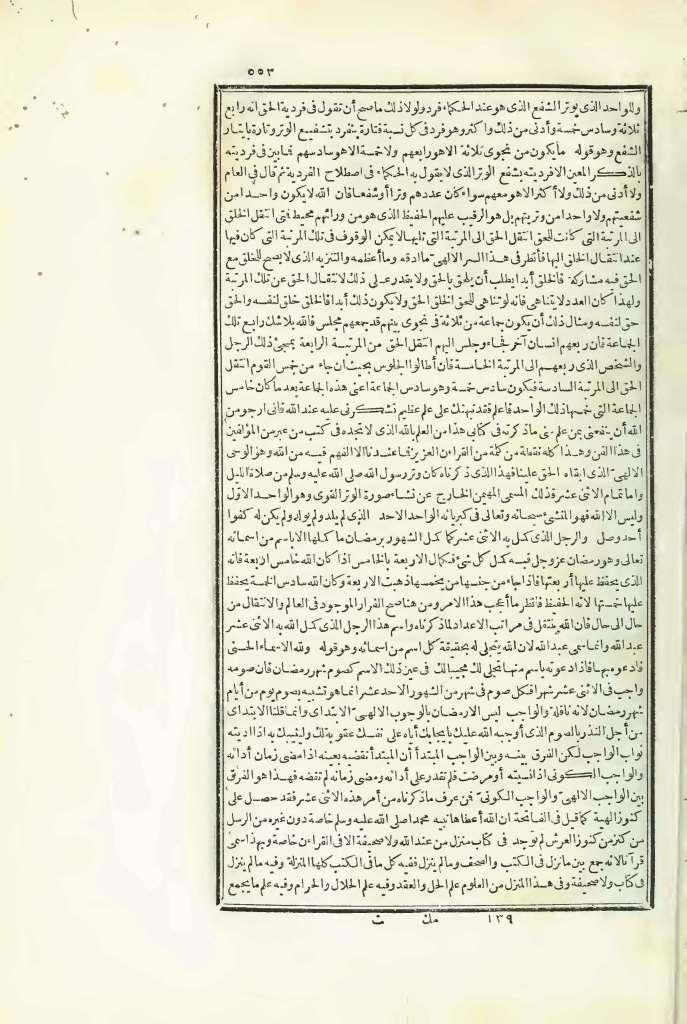 ٥٥٣
وللواحد الذى يوتر الشفع الذى هو عند الحكماء فرد ولولا ذلك ما صح أن تقول فى فردية الحق انه رابع
ثلاثة وسادس خمسة وأدنى من ذلك وأكثر وهو فرد فى كل نسبة فتارة ينفرد بتشفيع الوتر وتارة بايتار
الشفع وهو قوله ما يكون من نجوى ثلاثة الا هو رابعهم ولا خمسة الا هو سادسهم فما بين فى فرديته
بالذكر المعين الا فرديته يشفع الوتر الذى لا يقول به الحكماء فى اصطلاح الفردية ثم قال فى العام
ولا أدنى من ذلك ولا أكثر الا هو معهم سواء كان عددهم وترا أو شفعا فان الله لا يكون واحدا من
شفعيتهم ولا واحدا من وتريتهم بل هو الرقيب عليهم الحفيظ الذى هو من ورائهم محيط فمتى انتقل الخلق
الى المرتبة التى كانت للحق انتقل الحق الى المرتبة التى تليها لا يمكن الوقوف فى تلك المرتبة التى كان فيها
عند انتقال الخلق اليها فانظر فى هذا السر الالهى ما أدقه وما أعظمه والتنزيه الذى لا يصح للخلق مع
الحق فيه مشاركة فالخلق أبدا يطلب أن يلحق بالحق ولا يقدر على ذلك لانتقال الحق عن تلك المرتبة
ولهذا كان العدد لا يتناهى فانه لو تناهى للحق الخلق الحق ولا يكون ذلك أبدا فالخلق خلق لنفسه والحق
حق لنفسه ومثال ذلك أن يكون جماعة من ثلاثة فى نجوى بينهم قد جمعهم مجلس فالله بلا شك رابع تلك
الجماعة فان ربعهم انسان آخر فجاء وجلس اليهم انتقل الحق من المرتبة الرابعة بمجىء ذلك الرجل
والشخص الذى ربعهم الى المرتبة الخامسة فان أطالوا الجلوس بحيث ان جاء من خمس القوم انتقل
الحق الى المرتبة السادسة فيكون سادس خمسة وهو سادس الجماعة اعنى هذه الجماعة بعد ما كان خامس
الجماعة التى خمسها ذلك الواحد فاعلم فقد نبهتك على علم عظيم تشكرنى عليه عند الله فانى ارجو من
الله أن ينفعنى بمن علم منى ما ذكرته فى كتابى هذا من العلم بالله الذى لا تجده فى كتب من غبر من المؤلفين
فى هذا الفن وهذا كله نقطة من كلمة من القرءان العزيز فما عندنا الا الفهم فيه من الله وهو الوحى
الالهى الذى ابقاه الحق علينا فهذا الذى ذكرناه كان وتر رسول الله صلى الله عليه وسلم من صلاة الليل
وأما تمام الاثنى عشر فذلك المسمى المهيمن الخارج عن نشاء صورة الوتر القوى وهو الواحد الاول
وليس الا الله فهو المنشئ سبحانه وتعالى فى كبريائه الواحد الاحد الذى لم يلد ولم يولد ولم يكن له كفوا
أحد وصل والرجل الذى كمل به الاثنى عشر كما كمل الشهور برمضان ما كملها الا باسم من اسمائه
تعالى وهو رمضان عز وجل فبه كمل كل شئ فكمال الاربعة بالخامس اذا كان الله خامس اربعة فانه
الذى يحفظ عليها أربعتها فاذا جاء من جنسها من يخمسها ذهبت الاربعة وكان الله سادس الخمسة يحفظ
عليها خمستها لانه الحفيظ فانظر ما أعجب هذا الامر ومن هنا صح القرار الموجود فى العالم والانتقال من
حال الى حال فان الله ينتقل فى مراتب الاعداد لما ذكرناه واسم هذا الرجل الذى كمل الله به الاثنى عشر
عبد الله وانما سمى عبد الله لان الله يتجلى له بحقيقة كل اسم من اسمائه وهو قوله ولله الاسماء الحسنى
فادعوه بها فاذا دعوته باسم منها تجلى لك مجيبا لك فى عين ذلك الاسم كصوم شهر رمضان فان صومه
واجب فى الاثنى عشر شهرا فكل صوم فى شهر من الشهور الاحد عشر انما هو تشبيه بصوم يوم من أيام
شهر رمضان لانه نافلة والواجب ليس الا رمضان بالوجوب الالهى الابتداى وانما قلنا الابتداى
من أجل النذر بالصوم الذى أوجبه الله عليك بايجابك أياه على نفسك عقوبة لك وليثيبك به اذا اديته
ثواب الواجب لكن الفرق بينه وبين الواجب المبتدأ أن المبتدأ تقضيه بعينه اذا مضى زمان أدائه
والواجب الكونى اذا نسيته أو مرضت فلم تقدر على أدائه ومضى زمانه لم تقضه فهذا هو الفرق
بين الواجب الالهى والواجب الكونى فمن عرف ما ذكرناه من أمر هذه الاثنى عشر فقد حصل على
كنوز الهية كما قيل فى الفاتحة ان الله أعطاها نبيه محمدا صلى الله عليه وسلم خاصة دون غيره من الرسل
من كنز من كنوز العرش لم توجد فى كتاب منزل من عند الله ولا صحيفة الا فى القراءن خاصة وبهذا سمى
قرآنا لانه جمع بين ما نزل فى الكتب والصحف وما لم ينزل ففيه كل ما فى الكتب كلها المنزلة وفيه ما لم ينزل
فى كتاب ولا صحيفة وفى هذا المنزل من العلوم علم الحل والعقد وفيه علم الحلال والحرام وفيه علم ما يجمع
١٣٩ مك ت